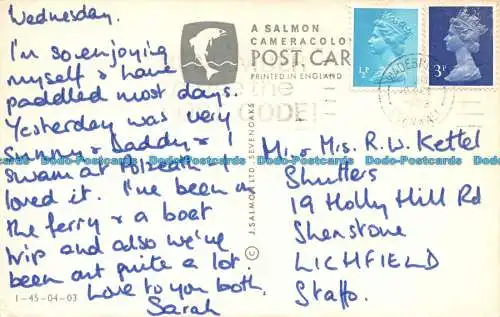 Wednesday.
I'm so enjoying
myself & have
paddled most days.
Yesterday was very
sunny & Daddy & I
swam at Polzeath. I
loved it. I've been on
the ferry & a boat
trip and also we've
been out quite a lot.
Love to you both,
Sarah
1-45-04-03
A SALMON
CAMERACOLOUR
POST CARD
PRINTED IN ENGLAND
© J. SALMON LTD., SEVENOAKS
½P
3P
the
CODE!
Mr & Mrs. R.W. Kettel
Shutters
19 Holly Hill Rd
Shenstone
LICHFIELD
Staffs.
Dodo-Postcards Dodo-Postcards Dodo-Postcards Dodo-Postcards Dodo-Postcards